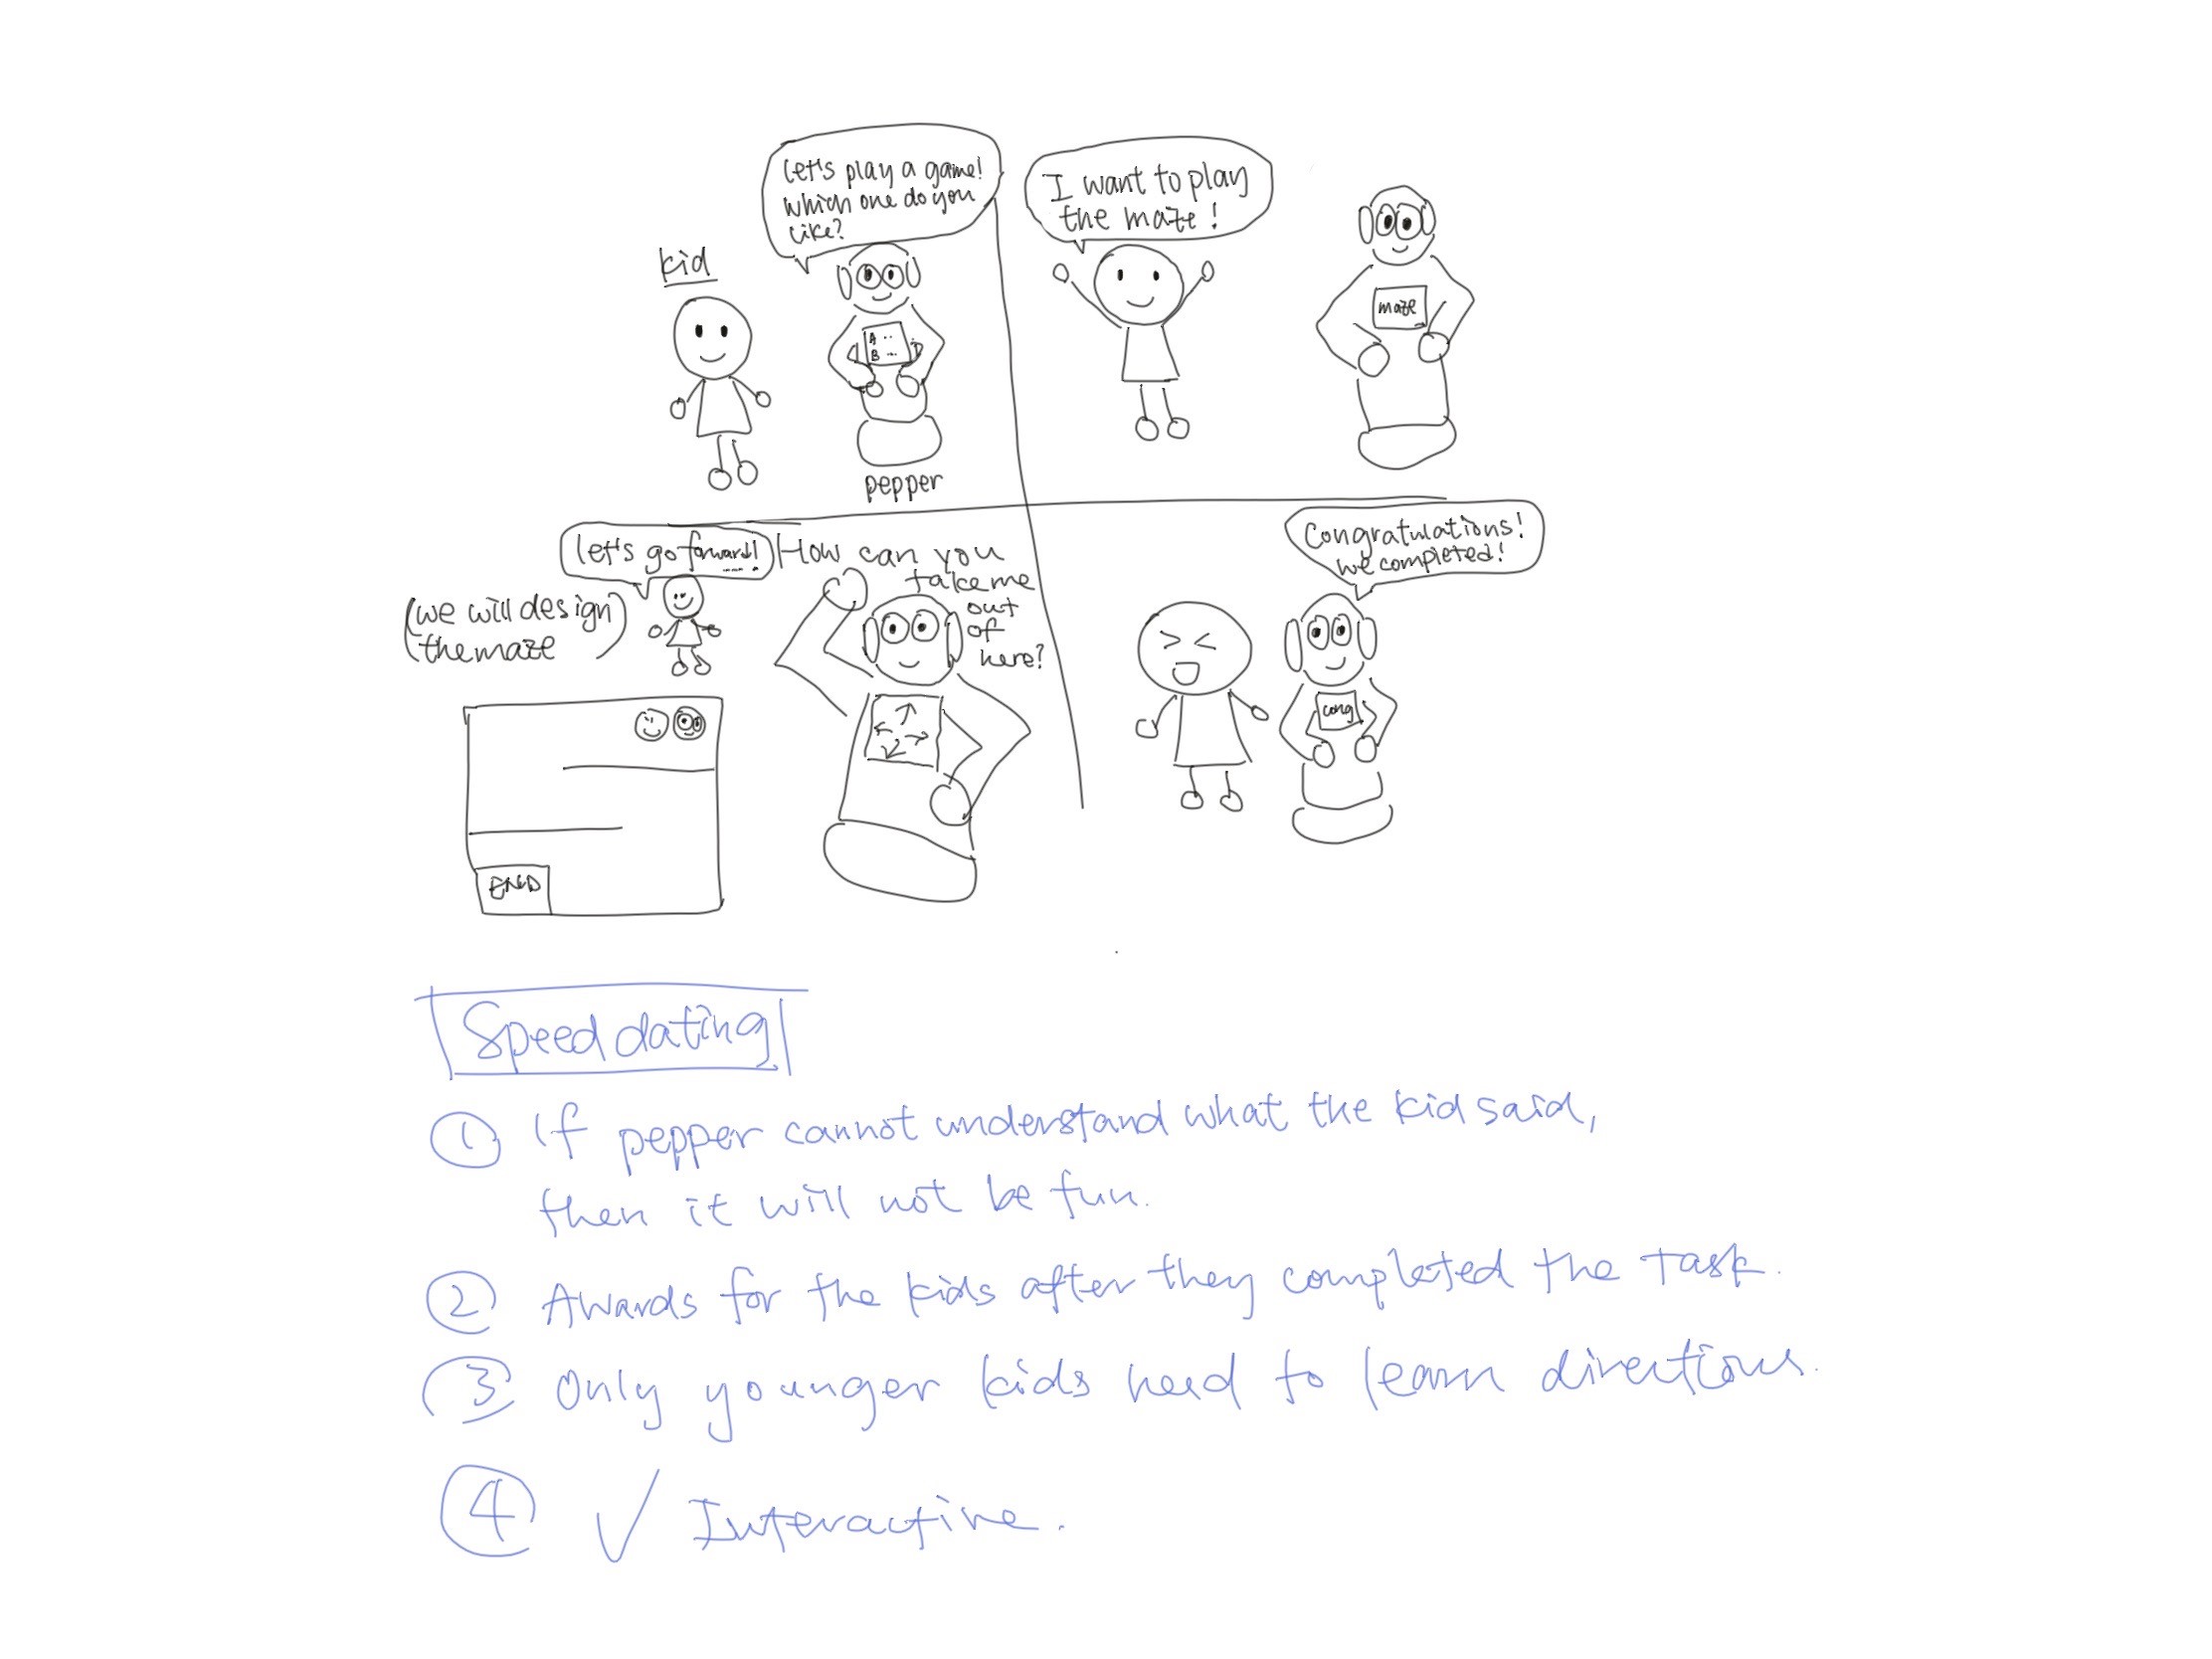 Let's play a game!
which one do you
like?
kid
A ..
B ...
pepper
I want to play
the maze!
maze
let's go forward!
....
(we will design
the maze)
How can you
take me
out
of
here?
END
Congratulations!
we completed!
cong
Speed dating
① If pepper cannot understand what the kid said,
then it will not be fun.
② Awards for the kids after they completed the task.
③ Only younger kids need to learn directions.
④ ✓ Interactive.